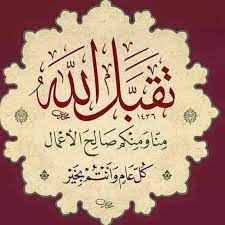 تقبل الله
١٤٣٦
منا ومنكم صالح الأعمال
كل عام وأنتم بخير